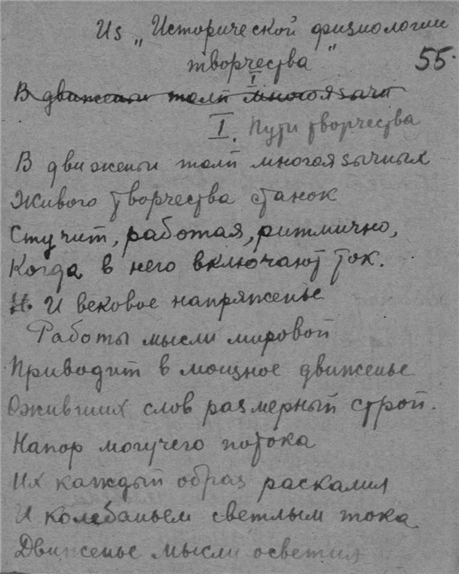 Из „Исторической физиологии
творчества"
55.
I
В движеньи толп многоязычн
I. Пути творчества
В движеньи толп многоязычных
Живого творчества станок
Стучит, работая, ритмично,
Когда в него включают ток.
И. И вековое напряженье
Работы мысли мировой
Приводит в мощное движенье
Оживших слов размерный строй.
Напор могучего потока
Их каждый образ раскалил
И колебаньем светлым тока
Движенье мысли осветил